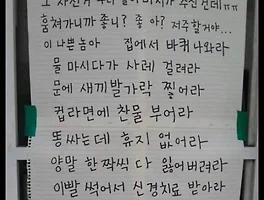 그 자전거 우리 할아버지가 주신건데ㅠㅠ
훔쳐가니까 좋니? 좋아? 저주할거야...
이 나쁜놈아 집에서 바퀴 나와라
물 마시다가 사레 걸려라
문에 새끼발가락 찧어라
컵라면에 찬물 부어라
똥싸는데 휴지 없어라
양말 한 짝씩 다 잃어버려라
이빨 썩어서 신경치료 받아라